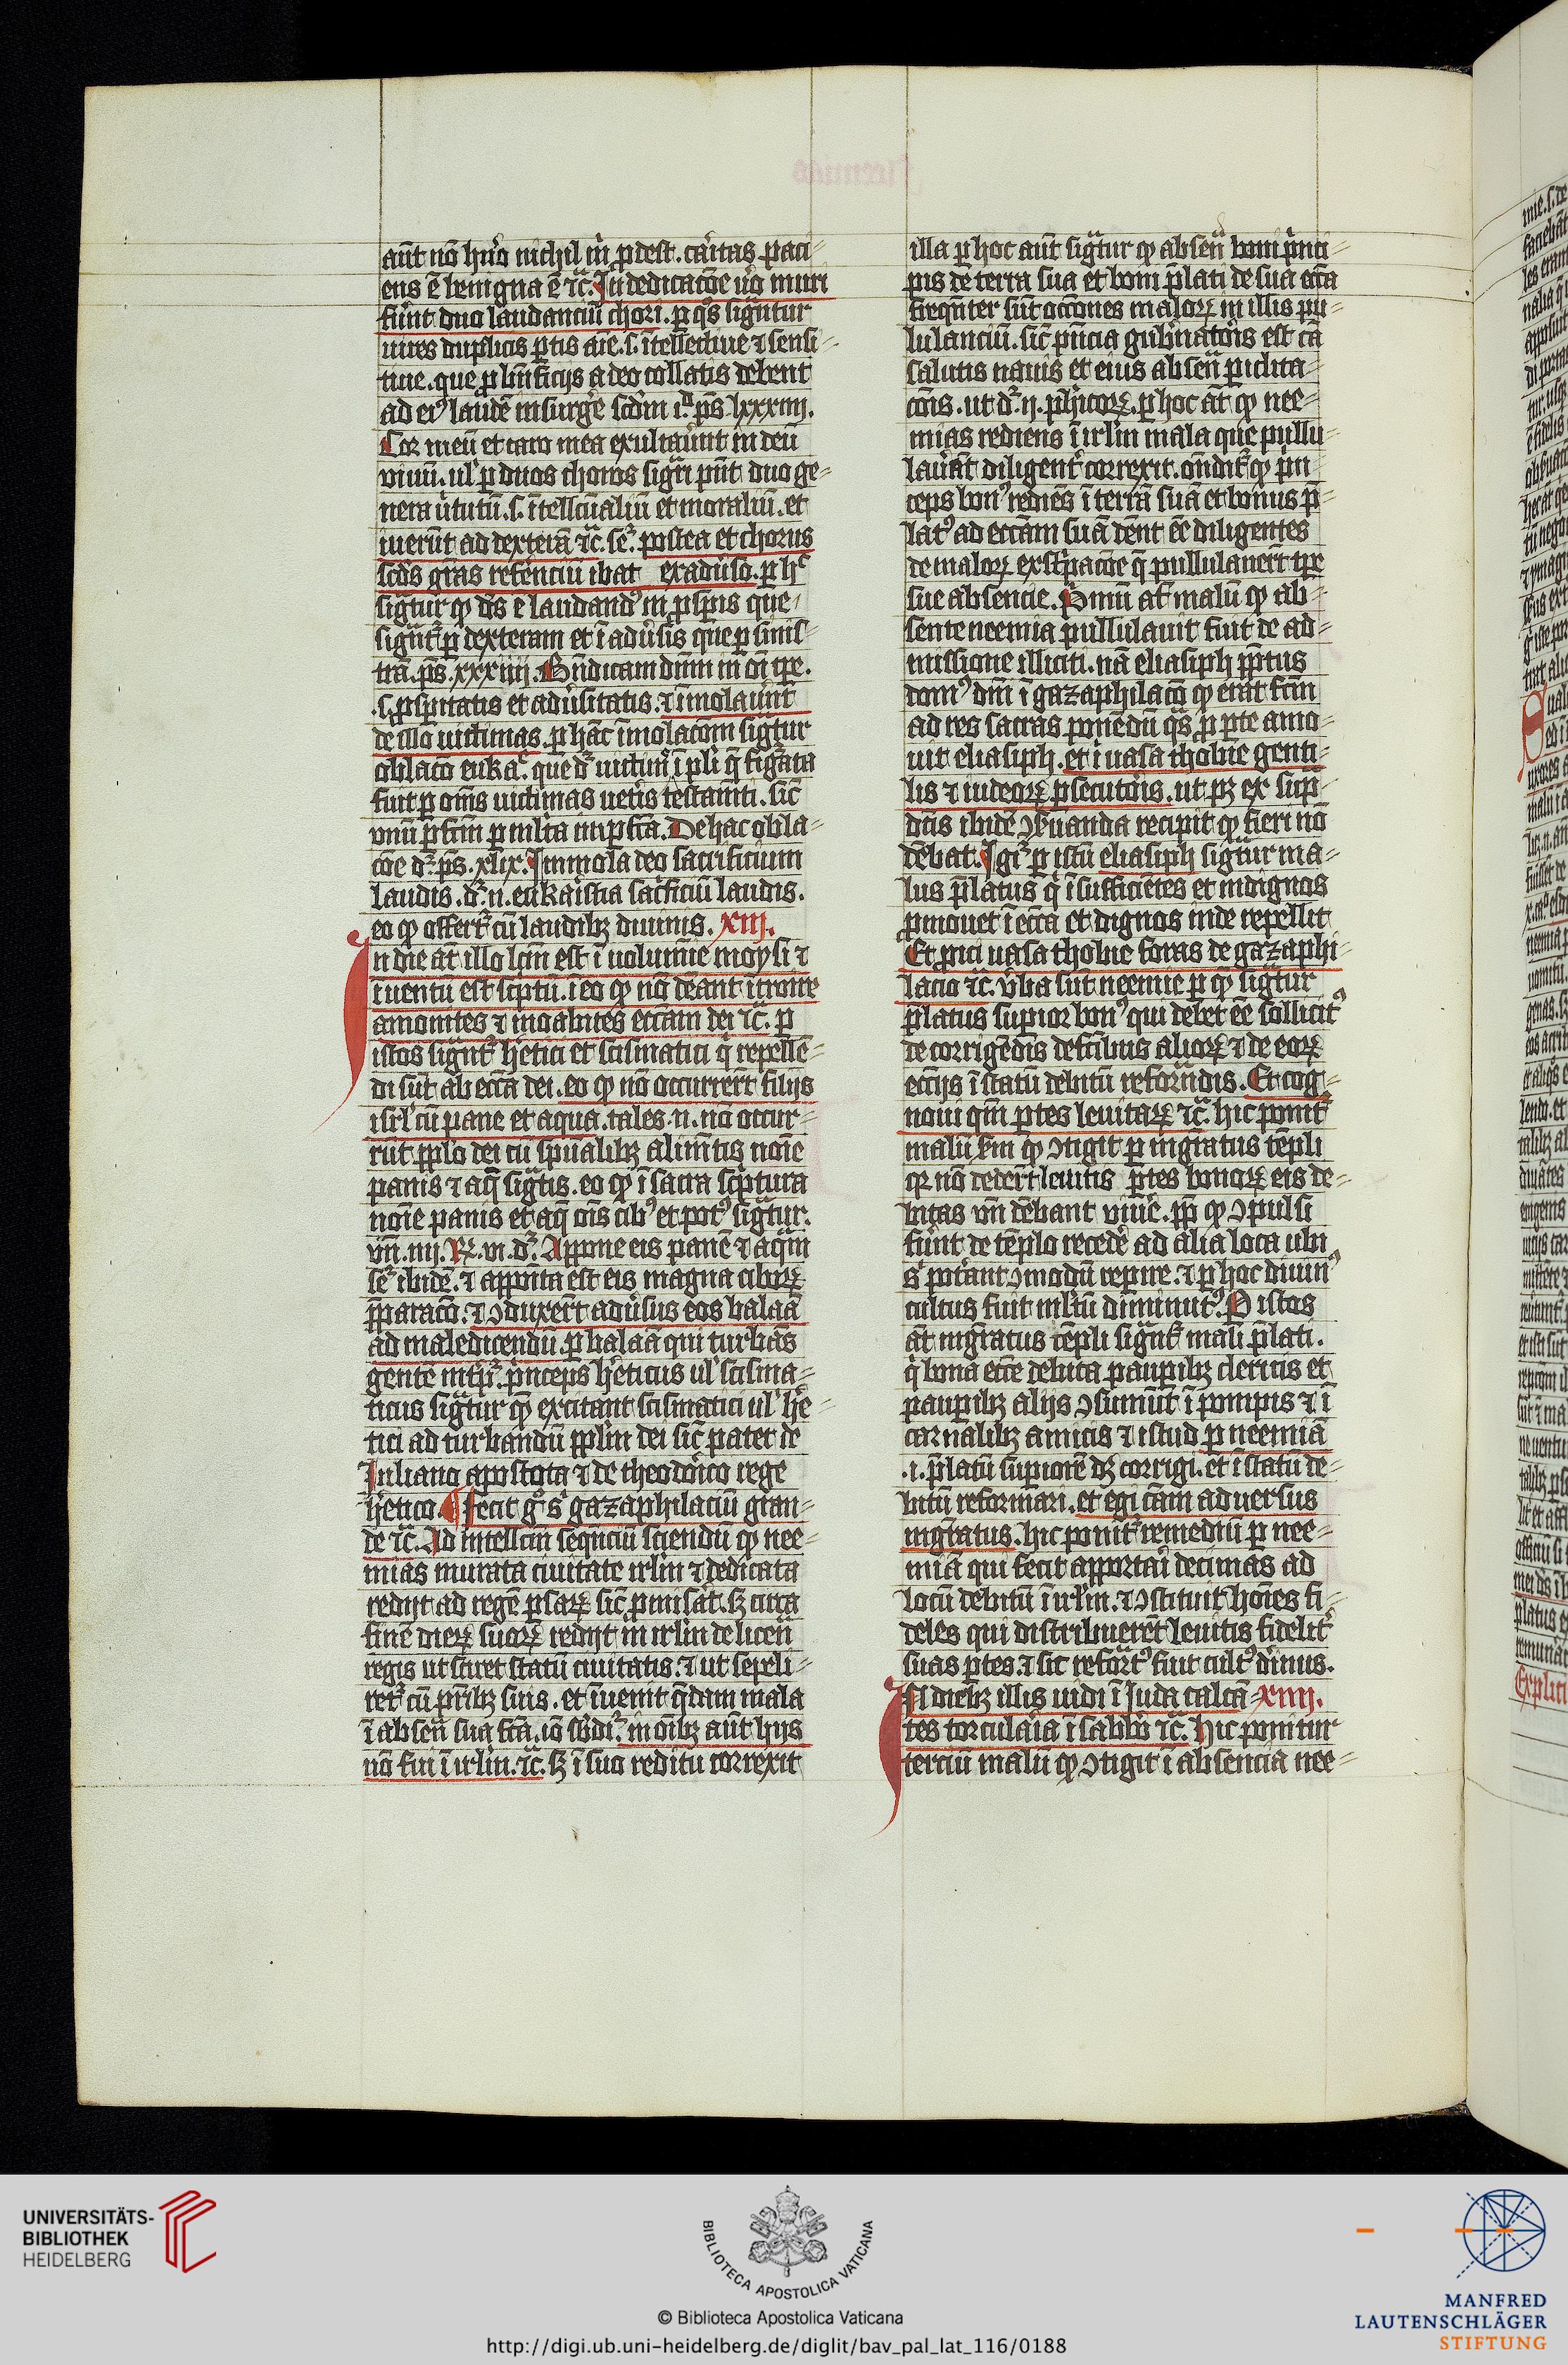 aūt nō huͦ nichil m̄ pdest. caritas paci-
ens ē benigna ē ⁊c̄. In dedicacōe u̔o muri
fūnt duo laudanciū chori. p q̊s sigñtur
uires duplicis ptis aīe. s. ītellectiue ⁊ sensi-
tiue. que p bn̄ficijs a deo collatis debent
ad eiꝰ laudē insurg̔e scdm̄ p̄s. lxxxiii.
Cor meū et caro mea exultau̔nt in deū
viuū. ul̓ p duos choros sig̔ri pn̄t duo ge-
nera u̔tutū. s. ītellcūaliū et moraliū. et
iuerūt ad dexterā ⁊c̄. se. postea et chorus
scd̄s gr̄as referēciū ibat ex adu̔so. p hͨ
sig̔tur ꝙ d̄s ē laudandꝰ in pspis que
sigñt̄ p dexteram et ī adu̔sis que p sinis-
trā. p̄s. xxxiiij. Bn̄dicam dn̄m in oī tp̄e.
.s. pspitatis et adu̔sitatis. ⁊ īmolaūnt
de illo uictimas. p hāc īmolacōm sig̔tur
oblacō eukaͨ. que d̄r uictīa ī pl̓i q̄ fig̔ata
fuit p om̄s uictimas uet̔is testam̄ti. sic̄
vnū pfcm̄ p mlta impfc̄a. De hac obla-
cōe d̄r p̄s. xlix. Immola deo sacrificium
laudis. d̄r. n. eukaristia sac̔ficiū laudis.
eo ꝙ offert̄ cū laudibꝫ diuinis. xiij.
In die āt illo lcm̄ est ī uolumīe moysi ⁊
īuentū est sc̔ptū. ī eo ꝙ nō dēant īt̔oire
amonites ⁊ moabites ecc̄am dei ⁊c̄. p
istos sigñt̄ h̔etici et scismatici q̔ repellē-
di sūt ab ecc̄a dei. eo ꝙ nō occurrer̄t filijs
isrl̓ cū pane et aqua. tales. n. nō occur-
rūt pp̄lo dei cū sp̄ualibꝫ alim̄tis noīe
panis ⁊ aq̄ sig̔tis. eo ꝙ ī sacra sc̔ptura
noīe panis et aq̄ oīs cibꝰ et potꝰ sig̔tur.
vn̄. iiij. R. vi. d̄r. Appone eis panē ⁊ aq̄m
se. ibidē. ⁊ appōita est eis magna ciboꝝ
p̄paracō. ⁊ ↄduxer̄t adu̔sus eos balaā
ad maledicendū. p balaā qui turbās
gentē īntp̄r. p̔nceps h̔eticus ul̓ scisma-
ticus sig̔tur quē excitant scismatici ul̓ h̔e-
tici ad turbandū pp̄lm dei sic̄ patet de
Juliano apostota ⁊ de theodo̔ico rege
h̔etico. ¶ Fecit gͦ sͥ gazaphilaciū gran-
de ⁊c̄. Ad intellcm̄ seqn̄ciū sciendū ꝙ nee-
mias murata ciuitate irl̓m ⁊ dedicata
redijt ad regē psaꝝ sic̄ pmisāt. sꝫ circa
finē dieꝝ suoꝝ redijt in irl̓m de licen̄
regis ut sciret statū ciuitatis. ⁊ ut sepeli-
ret̄ cū pr̄ibꝫ suis. et īuenit q̄dam mala
ī absen̄ sua fc̄a. iō s̄bdi. in oībꝫ aūt hijs
nō fui ī irl̓m. ⁊c̄. sꝫ ī suo reditu correxit
illa p hoc aūt sig̔tur ꝙ absen̄ boni p̔nci-
pis de terra sua et boni p̄lati de sua ecc̄a
freqn̄ter sūt occōnes maloꝝ in illis pu-
lulanciū. sic̄ pn̄cia gub̔natōis est cā
salutis nauis et eius absen̄ piclita-
cōis. ut d̄r. ij. phīcoꝝ. p hoc āt ꝙ nee-
mias rediens ī irl̓m mala que pullu-
lau̔āt diligent̔ correxit. ondit̄ ꝙ p̔n
ceps bonꝰ rediēs ī terrā suā et bonus p̄-
latꝰ ad ecc̄am suā dēnt eē diligentes
de maloꝝ exst̔pacōe q̄ pullulauer̄t tp̄e
sue absencie. Pmū āt malū ꝙ ab-
sente neemia pullulauit fuit de ad-
missione illiciti. nā eliasiph pp̄itus
domꝰ dn̄i ī gazaphilacō ꝙ erat fcm̄
ad res sacras ponēdū q̄s p pte amo-
uit eliasiph. et ī uasa thobie genti-
lis ⁊ iudeoꝝ psecutōis. ut pꝫ ex sup̄-
dc̄is ibidē ↄs̔uanda recipit ꝙ fieri nō
dēbat. Igͥ p istū eliasiph sig̔tur ma-
lus p̄latus q̔ īsufficiētes et indignos
pmouet ī ecc̄a et dignos inde repellit
Et pieci uasa thobie foras de gazaphi-
lacio ⁊c̄. v̔ba sūt neemie p q̄ sig̔tur
p̄latus supior bonꝰ qui debet eē sollicitꝰ
de corrigēdis defcībus alioꝝ ⁊ de eoꝝ
ecc̄ijs ī statū debitū reformādis. Et cog-
noui qm̄ ptes leuitaꝝ ⁊c̄. hic ponit̄
malū scdm̄ ꝙ ↄtigit p mgr̄atus tēpli
qꝛ nō deder̄t leuitis ptes bonoꝝ eis de-
bitas vn̄ dēbant viu̔e. pp̄ ꝙ ↄpulsi
fūnt de tēplo recedē ad alia loca ubi
sͥ pot̔ant ↄmodū repire. ⁊ p hoc diuinꝰ
cultus fuit mltū diminutꝰ. P istos
āt mgr̄atus tēpli sigñt̄ mali p̄lati.
q̔ bona ecc̄e debita paupibꝫ clericis et
paupibꝫ alijs ↄsumūt ī pompis ⁊ ī
carnalibꝫ amicis ⁊ istud p neemiā
.i. p̄latū supiorē dꝫ corrigi. et ī statū de-
bitū reformari. et egi cām aduersus
mgr̄atus. hic ponit̄ remediū p nee-
miā qui fecit apportari decimas ad
locū debitū ī irl̓m. ⁊ ↄstituit hoīes fi-
deles qui distribuerēt leuitis fidelit̔
suas ptes. ⁊ sic refort̔ꝰ fuit cultꝰ diuinus.
In diebꝫ illis uidi ī Juda calcā- xiiij.
tes torcularia ī sabbō ⁊c̄. Hic ponitur
terciū malū ꝙ ↄtigit ī absencia nee-
UNIVERSITÄTS-
BIBLIOTHEK
HEIDELBERG
BIBLIOTECA APOSTOLICA VATICANA
© Biblioteca Apostolica Vaticana
http://digi.ub.uni-heidelberg.de/diglit/bav_pal_lat_116/0188
MANFRED
LAUTENSCHLÄGER
STIFTUNG